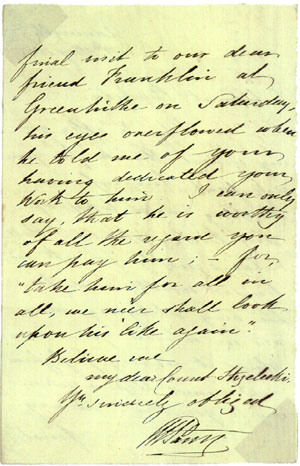 final visit to our dear
friend Franklin at
Greenhithe on Saturday,
his eyes overflowed when
he told me of your
having dedicated your
Work to him I can only
say, that he is worthy
of all the regard you
can pay him; – for,
"take him for all in
all, we ne'er shall look
upon his like again".
Believe me
my dear Count Strzelecki
Yrs sincerely obliged